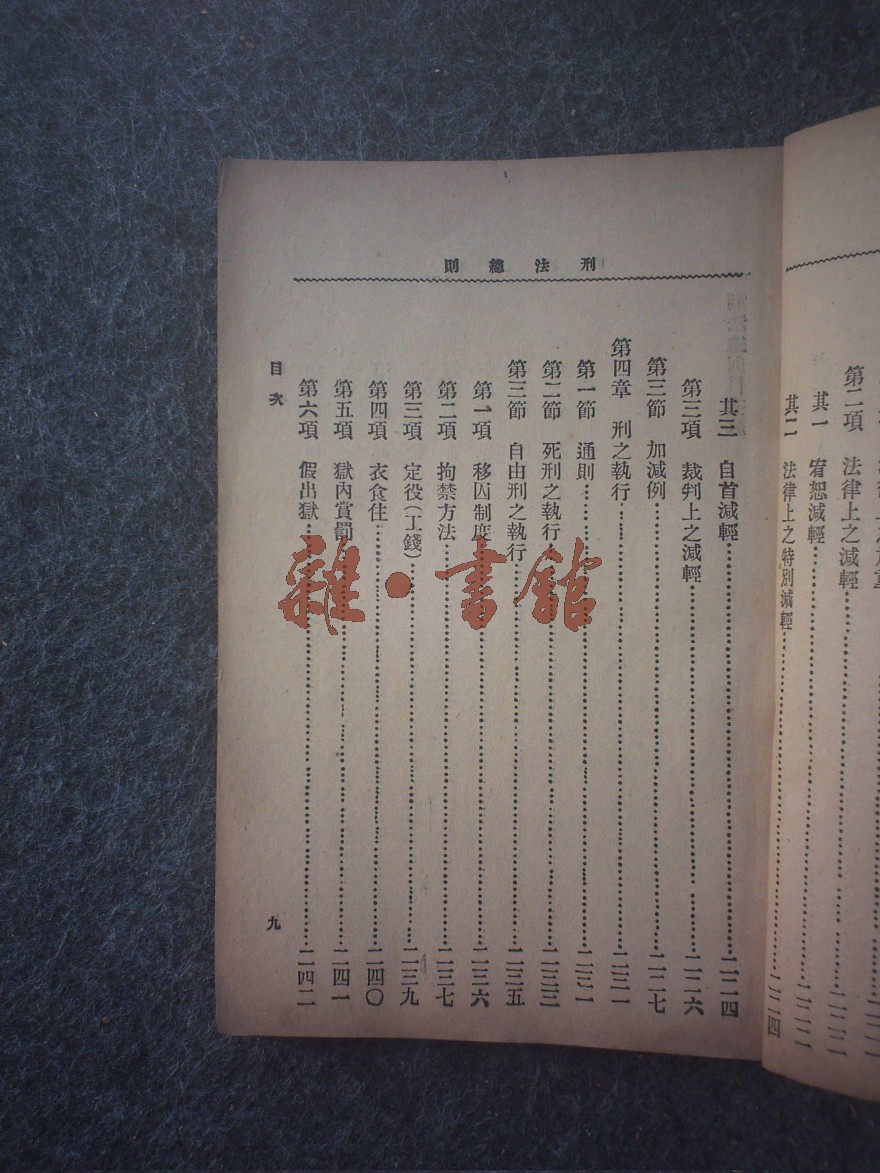 第二項 法律上之減輕……二二二
其一 宥恕減輕……二二二
其二 法律上之特別減輕……二二四
刑法總則
其三 自首減輕……二二四
第三項 裁判上之減輕……二二六
第三節 加減例……二二七
第四章 刑之執行……二三一
第一節 通則……二三一
第二節 死刑之執行……二三三
第三節 自由刑之執行……二三五
第一項 移囚制度……二三六
第二項 拘禁方法……二三七
第三項 定役(工錢)……二三九
第四項 衣食住……二四〇
第五項 獄內賞罰……二四一
第六項 假出獄……二四二
目次 九
雜·書館